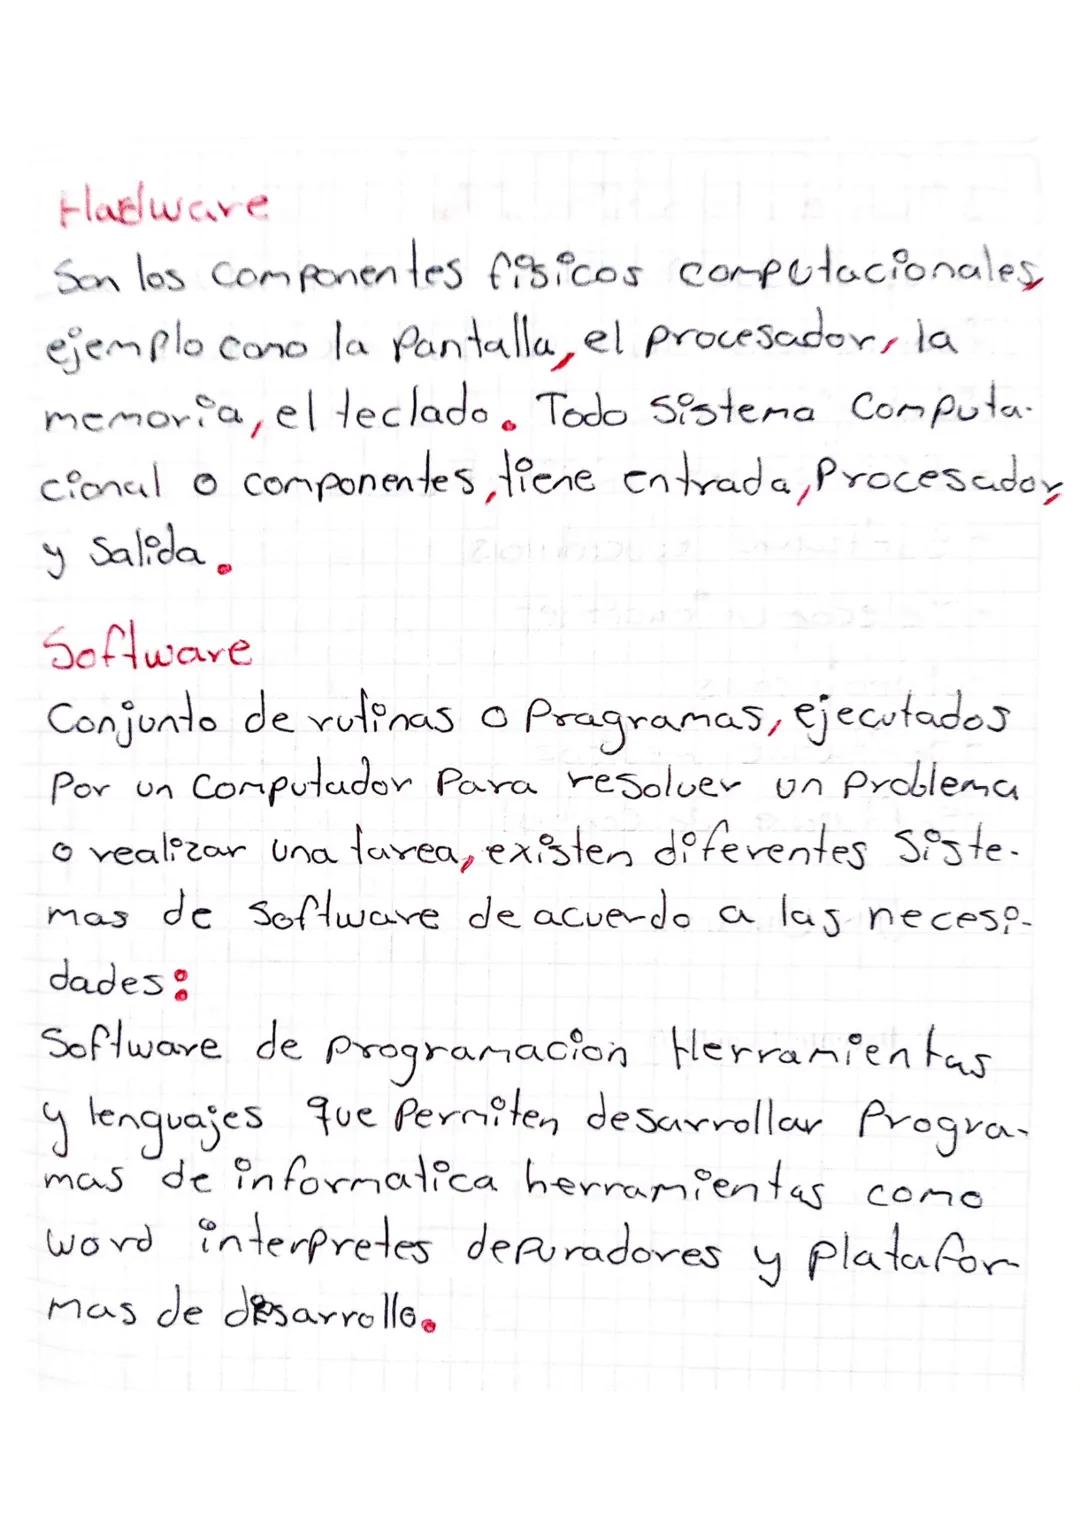 Hardware
Son los componentes físicos computacionales,
ejemplo como la Pantalla, el procesador, la
memoria, el teclado. Todo sistema Computa-
cional o componentes, tiene entrada, Procesador,
y Salida.
Software
Conjunto de rutinas o Pragramas, ejecutados
Por un Computador Para resolver un Problema
o realizar una tarea, existen diferentes Siste-
mas de Software de acuerdo a las necesi-
dades:
Software de programacion Herramientas
y lenguajes que Permiten desarrollar Progra-
mas de informatica herramientas como
word interpretes depuradores y Platafor-
mas de desarrollo.